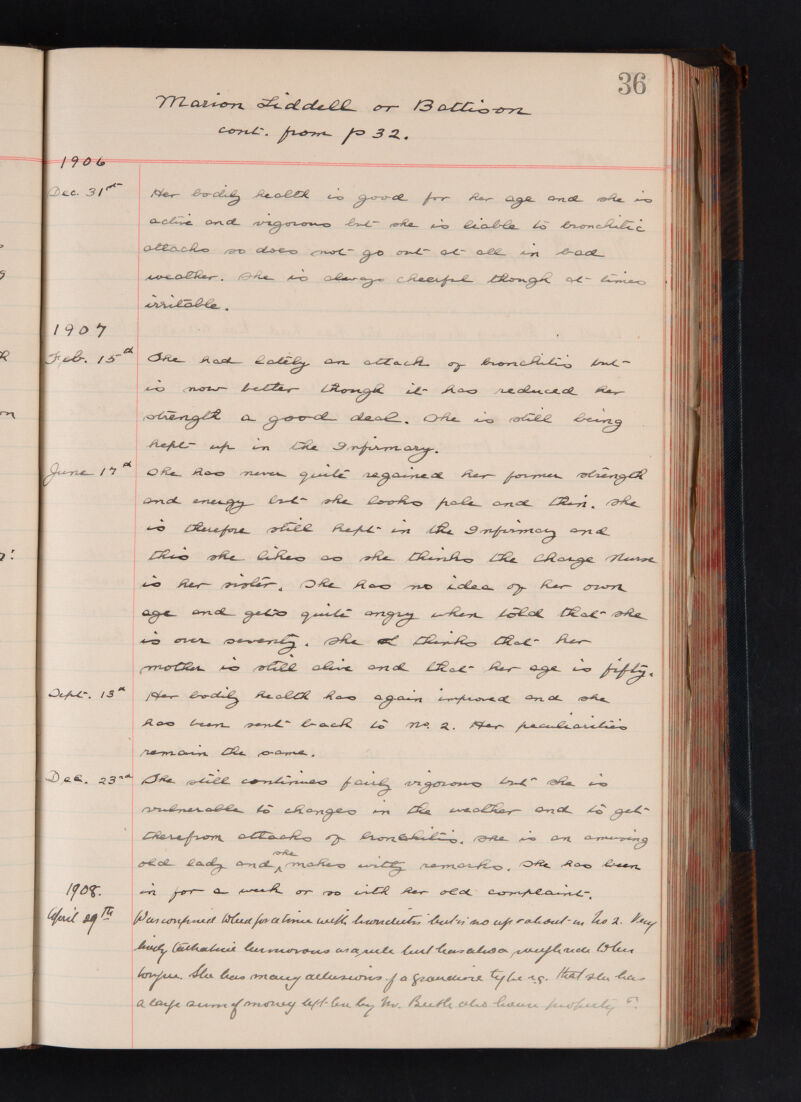 36
Marion Liddell or Battison
cont. from p 32.
1906
Dec. 31st Her bodily health is good for her age and she is
active and vigorous but she is liable to bronchitic
attacks so does not go out at all in bad
weather. She is always cheerful though at times
irritable.
1907
Feb. 15th She had lately an attack of bronchitis but
is now better though it has reduced her
strength a good deal. She is still being
kept up in the Infirmary.
June 17th She has never quite regained her former strength
and energy but she looks pale and thin. She
is therefore still kept in the Infirmary and
this she likes as she thinks the Charge Nurse
is her sister. She has no idea of her own
age and gets quite angry when told that she
is over seventy. She thinks that her
mother is still alive and that her age is fifty.
Sept. 13th Her bodily health has again improved and she
has been sent back to No. 2. Her peculiarities
remain the same.
Dec. 23rd She still continues fairly vigorous but she is
vulnerable to changes in the weather and to get
therefrom attacks of bronchitis. She is an amusing
old lady and she makes witty remarks. She has been
1908. in for a week or so with her old complaint.
April 29th Was confined to bed for a time with bronchitis but is up & about in No 2. Very
lively talkative humorous as a rule but has also a rough side to her
tongue. She has many delusions of a grandiose type e.g. that she has
a large sum of money left her by Mr. also house property